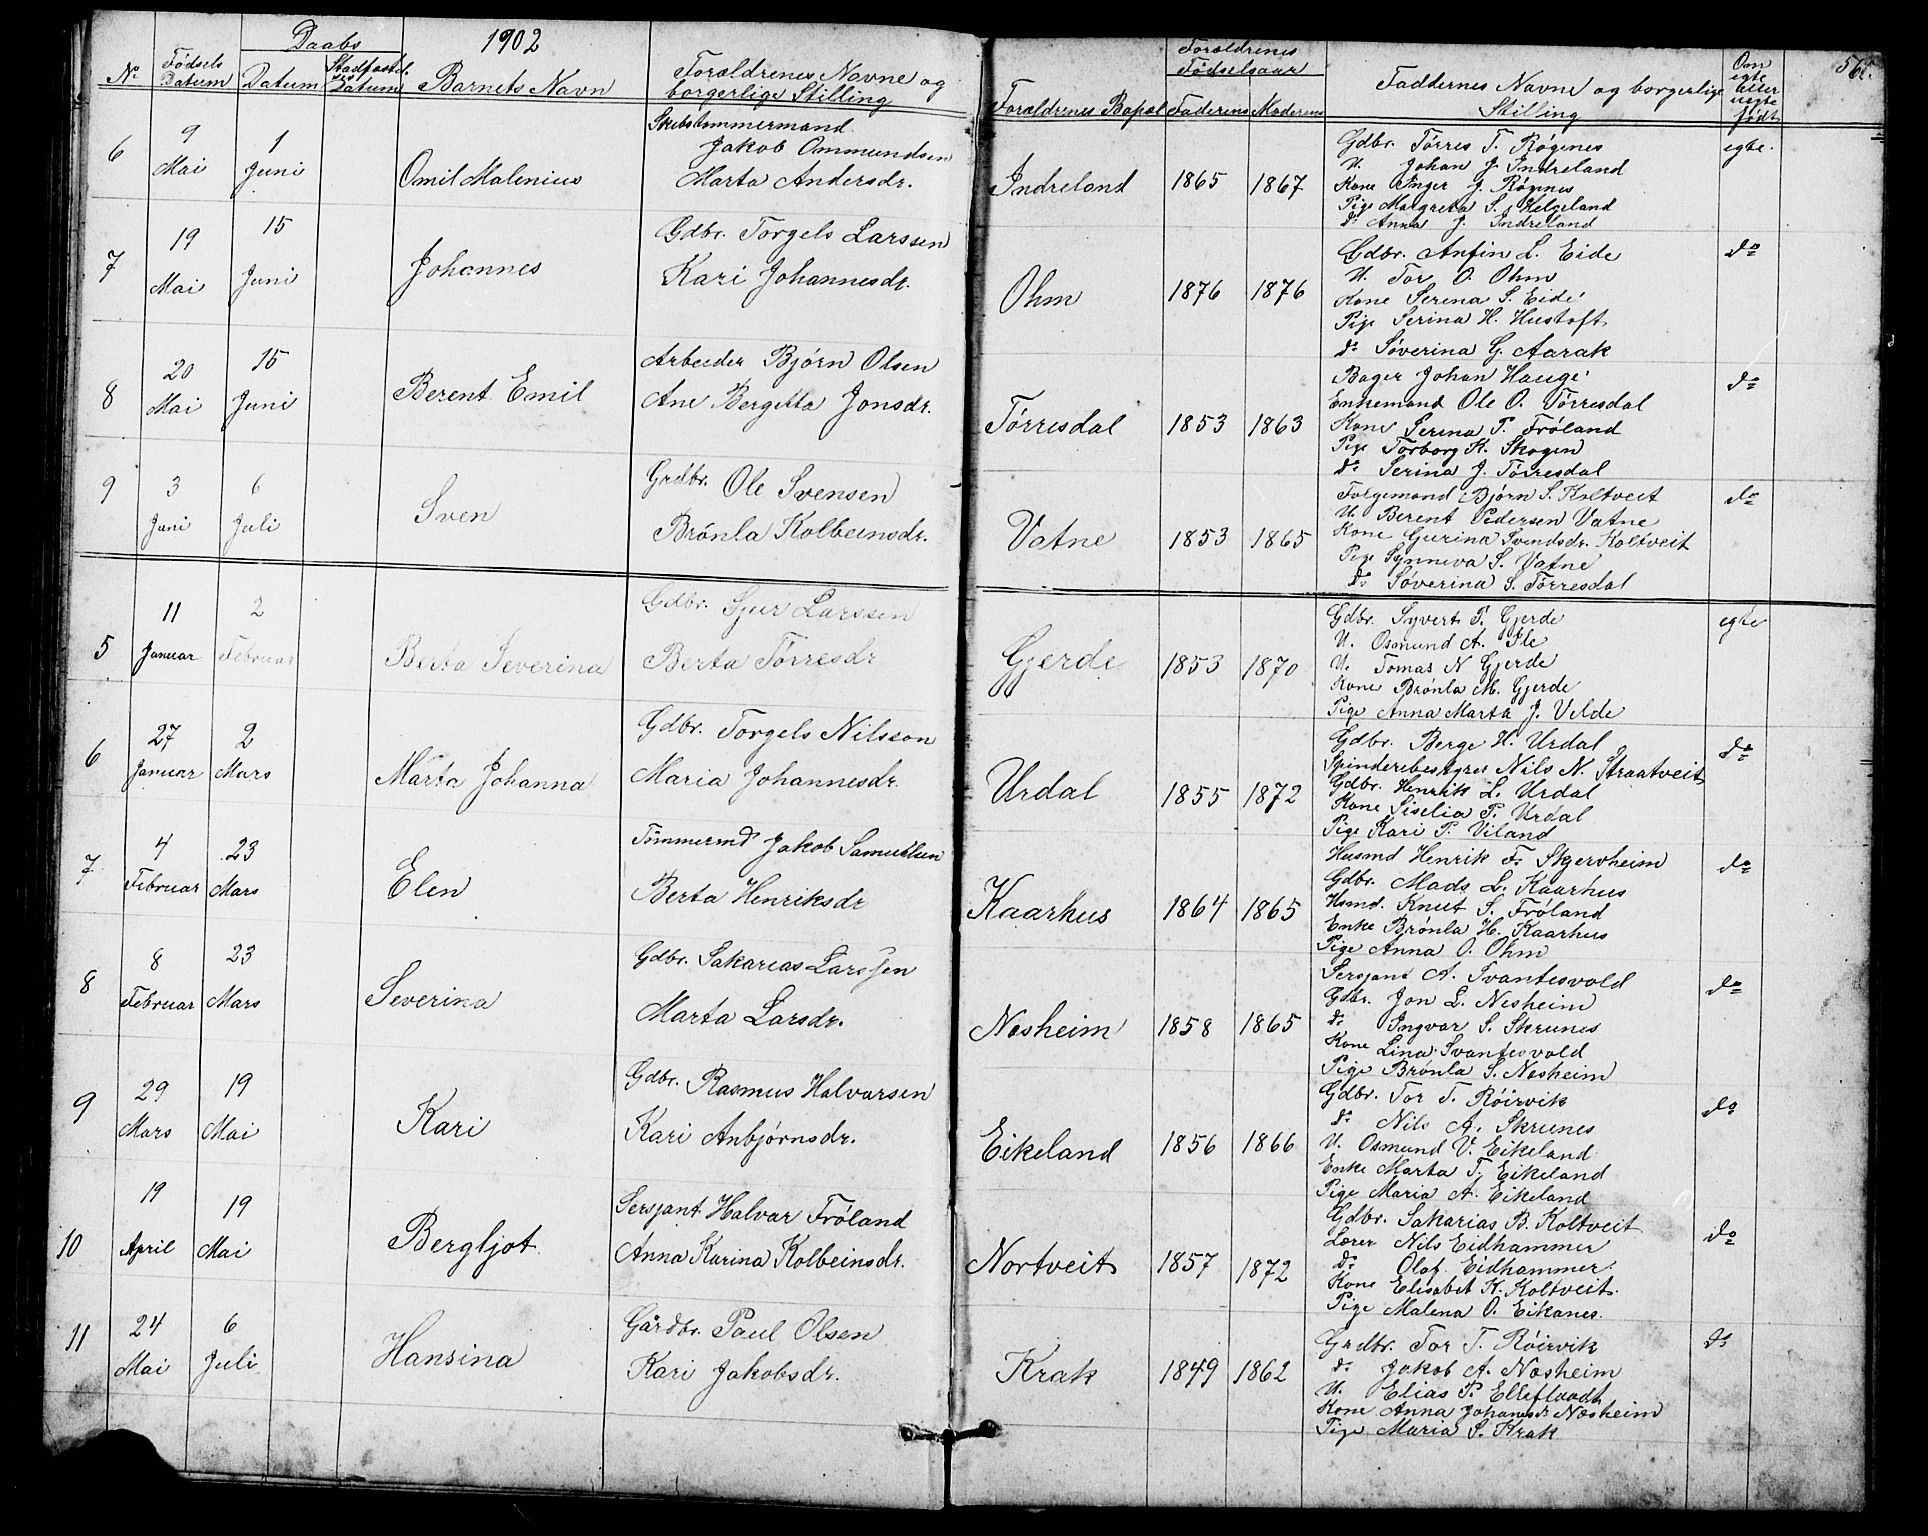 1902
56.
No
Fødsels Datum
Daabs
Datum
Stadfæstel. Datum
Barnets Navn
Forældrenes Navne og borgerlige Stilling
Forældrenes Bopæl
Forældrenes Fødselsaar
Faderens
Moderens
Faddernes Navne og borgerlige Stilling
Om egte eller uegte født
6
9 Mai
1 Juni
Omil Malenius
Skibstømmermand
Jakob Ommundsen
Marta Andersdr.
Indreland
1865
1867
Gdbr. Tørres T. Røgenes
U. Johan J. Indreland
Kone Inger J. Røgenes
Pige Margreta S. Helgeland
do Anna J. Indreland
egte.
7
19 Mai
15 Juni
Johannes
Gdbr. Torgels Larssen
Kari Johannesdr.
Ohm
1876
1876
Gdbr. Anfin L. Eide
U. Tor O. Ohm
Kone Serina S. Eide
Pige Serina H. Hustoft
do Søverina G. Aarak
do
8
20 Mai
15 Juni
Berent Emil
Arbeider Bjørn Olsen
Ane Bergitta Jonsdr.
Tørresdal
1853
1863
Bager Johan Hauge
Enkemand Ole O. Tørresdal
Kone Serina P. Frøland
Pige Torborg K. Skogen
do Serina J. Tørresdal
do
9
3 Juni
6 Juli
Sven
Grdbr. Ole Svensen
Brønla Kolbeinsdr.
Vatne
1853
1865
Forgemand Bjørn S. Koltveit
U. Berent Pedersen Vatne
Kone Gurina Svendsdr. Koltveit
Pige Synneva S. Vatne
do Søverina S. Tørresdal
do
5
11 Januar
2 Februar
Berta Severina
Gdbr. Sjur Larssen
Berta Tørresdr
Gjerde
1853
1870
Gdbr. Syvert P. Gjerde
U. Osmund A. Ile
U. Tomas N Gjerde
Kone Brønla M. Gjerde
Pige Anna Marta J. Velde
egte
6
27 Januar
2 Mars
Marta Johanna
Gdbr. Torgels Nilsson
Maria Johannesdr.
Urdal
1855
1872
Gdbr. Berge H. Urdal
Spinderibestyrer Nils N. Straatveit
Gdbr. Henrik L. Urdal
Kone Siselia P. Urdal
Pige Kari P. Viland
do
7
4 Februar
23 Mars
Elen
Tømmermd Jakob Samuelsen
Berta Henriksdr
Kaarhus
1864
1865
Husmd Henrik F. Skjervheim
Gdbr. Mads L. Kaarhus
Hsmd. Knut S. Frøland
Enke Brønla H. Kaarhus
Pige Anna O. Ohm
do
8
8 Februar
23 Mars
Severina
Gdbr. Sakarias Larssen
Marta Larsdr.
Næsheim
1858
1865
Sersjant A. Svantesvold
Gdbr. Jon L. Nesheim
do Ingvar S. Skrunes
Kone Lina Svantesvold
Pige Brønla S. Næsheim
do
9
29 Mars
19 Mai
Kari
Gdbr. Rasmus Halvarsen
Kari Anbjørnsdr.
Eikeland
1856
1866
Gdbr. Tor T. Røirvik
do Nils A. Skrunes
U. Osmund V. Eikeland
Enke Marta T. Eikeland
Pige Maria A. Eikeland
do
10
19 April
19 Mai
Bergljot
Sersjant Halvar Frøland
Anna Karina Kolbeinsdr.
Nortveit
1857
1872
Gdbr. Sakarias B. Koltveit
Lærer Nils Eidhammer
do Olaf Eidhammer
Kone Elisabet K. Koltveit
Pige Malena O. Eikanes
do
11
24 Mai
6 Juli
Hansina
Gårdbr. Paul Olsen
Kari Jakobsdr.
Krak
1849
1862
Grdbr. Tor T. Røirvik
do Jakob A. Næsheim
U. Elias P. Elleflaadt
Kone Anna Johannesdr Næsheim
Pige Maria S. Krak
do